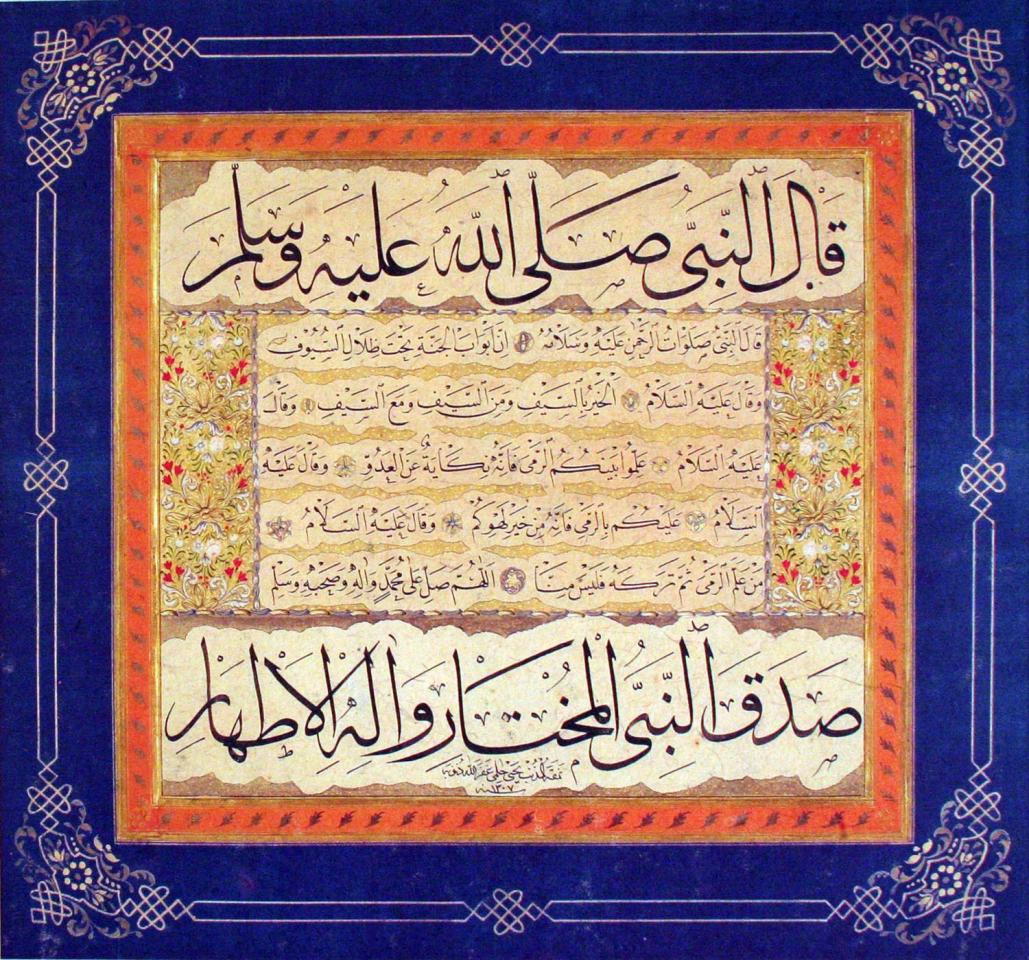 قال النبي صلى الله عليه وسلم
قال النبي صلوات الرحمن عليه وسلامه ان ابواب الجنة تحت ظلال السيوف
وقال عليه السلام الخير بالسيف ومن السيف ومع السيف وقال
عليه السلام علموا بنيكم الرمي فانه نكاية عن العدو وقال عليه
السلام عليكم بالرمي فانه من خير لهوكم وقال عليه السلام
من علم الرمي ثم تركه فليس منا اللهم صل على محمد واله وصحبه وسلم
صدق النبي المختار واله الاطهار
نمقه المذنب يحيى حلمي غفر الله ذنوبه
سنه ١٣٠٧